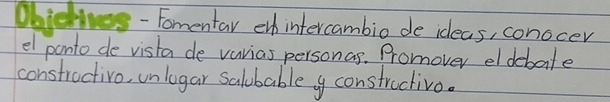 Objetivos - Fomentar el intercambio de ideas, conocer
el ponto de vista de varias personas. Promover el debate
constructivo, un lugar salubable y constructivo.